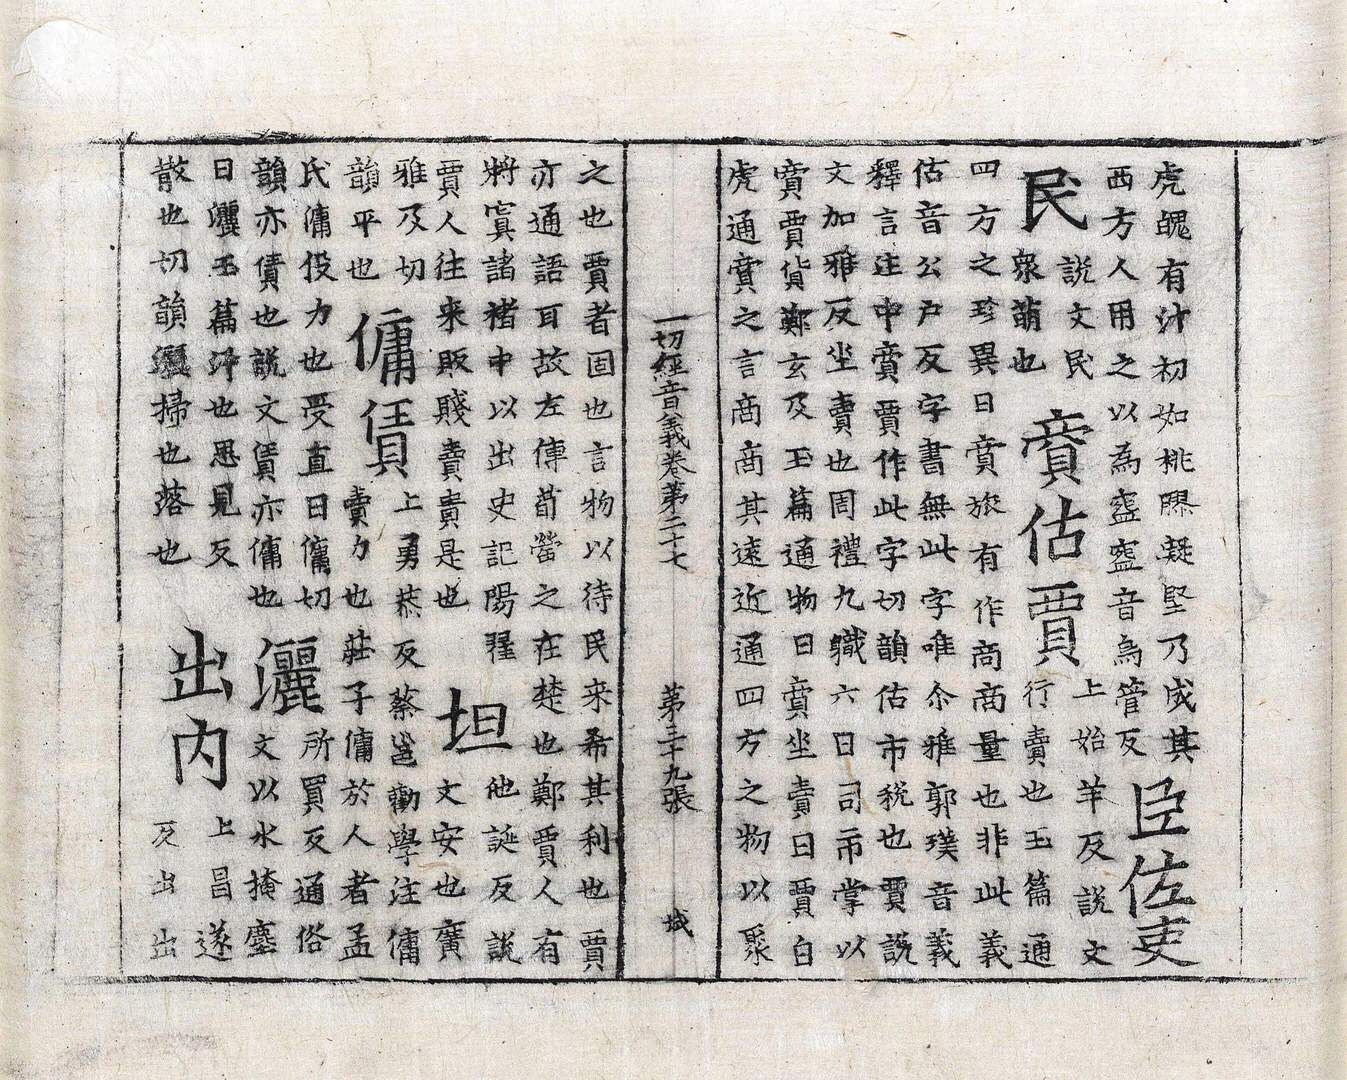 虎魄有汁初如桃膠凝堅乃成其
西方人用之以為盌盌音烏管反
臣佐吏
民
說文民
衆萌也
賣估賈
上始羊反說文
行賣也玉篇通
四方之珍異曰賣旅有作商商量也非此義
估音公戶反字書無此字唯尒雅郭璞音義
釋言注中賣賈作此字切韻估市稅也賈說
文加雅反坐賣也周禮九職六曰司市掌以
賣賈貨鄭玄及玉篇通物曰賣坐賣曰賈白
虎通賣之言商商其遠近通四方之物以聚
一切經音義卷第二十七 第三十九張 城
之也賈者固也言物以待民来希其利也賈
亦通語耳故左傳荀罃之在楚也鄭賈人有
將寘諸褚中以出史記陽翟
賈人往来販賤賣貴是也
坦
他誕反說
文安也廣
雅及切
韻平也
傭賃
上勇恭反蔡邕勸學注傭
賣力也莊子傭於人者孟
氏傭役力也受直曰傭切
韻亦債也說文賃亦傭也
灑
所買反通俗
文以水掩塵
曰灑玉篇汛也思見反
散也切韻灑掃也落也
出内
上昌遂
反出出